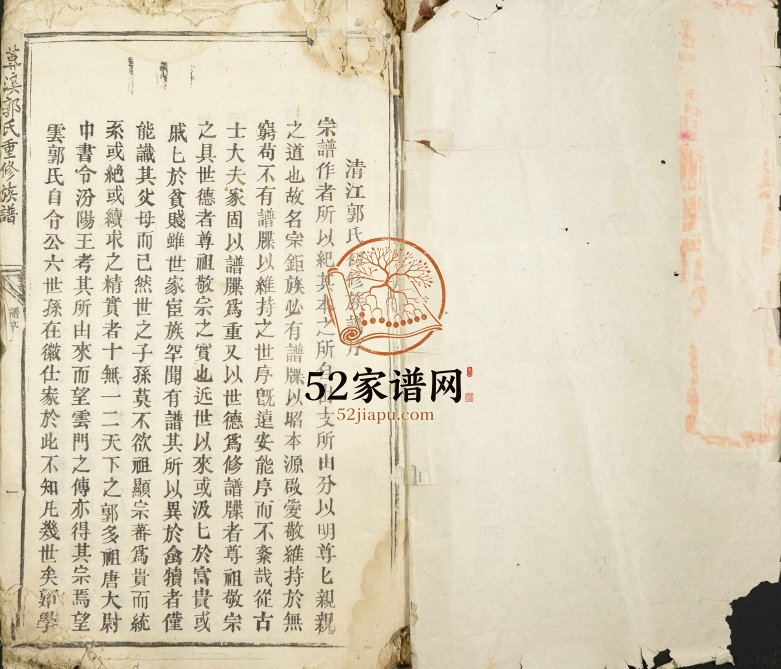 清江郭氏重修族譜序
宗譜作者所以紀其本之所自出支所由分以明尊匕親親
之道也故名宗鉅族必有譜牒以昭本源啟愛敬維持於無
窮苟不有譜牒以維持之世序旣遠安能序而不紊哉從古
士大夫家固以譜牒爲重又以世德爲修譜牒者尊祖敬宗
之具世德者尊祖敬宗之實也近世以來或汲匕於富貴或
戚匕於貧賤雖世家宦族罕聞有譜其所以異於禽犢者僅
能識其父母而已然世之子孫莫不欲祖顯宗蕃爲貴而統
系或絶或續求之精實者十無一二天下之郭多祖唐大尉
中書令汾陽王考其所由來而望雲門之傳亦得其宗焉望
雲郭氏自令公六世孫在徽仕家於此不知凢幾世矣如學
溪郭氏重修族譜
譜序
一
52家谱网
52jiapu.com